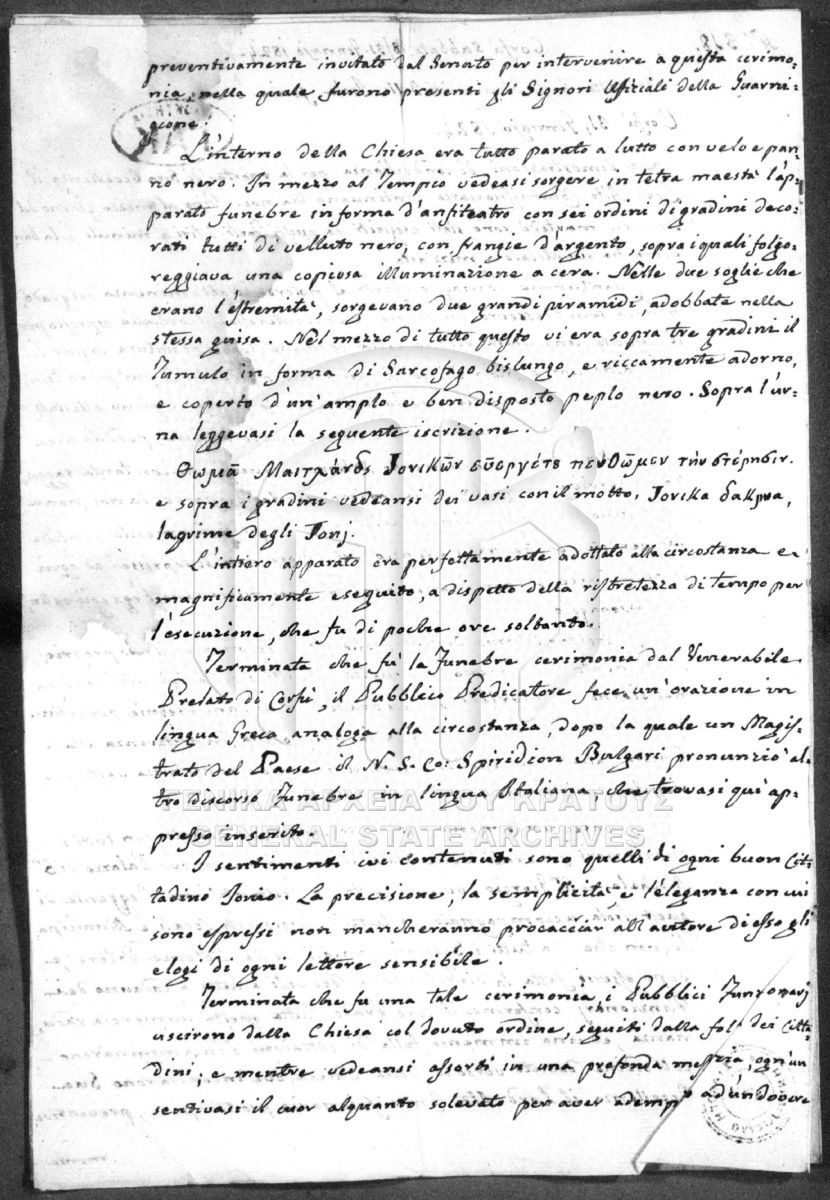 preventivamente invitato dal Senato per intervenire a questa cerimo-
nia, nella quale furono presenti gli Signori Uffiziali della Guarni-
gione.
L'interno della Chiesa era tutto parato a lutto con velo e pan-
no nero. In mezzo al Tempio vedeasi sorgere in tetra maestà l'ap-
parato funebre in forma d'anfiteatro con sei ordini di gradini deco-
rati tutti di velluto nero, con frangie d'argento, sopra i quali folgo-
reggiava una copiosa illuminazione a cera. Nelle due soglie che
erano l'estremità, sorgevano due grandi piramidi, adobbate nella
stessa guisa. Nel mezzo di tutto questo vi era sopra tre gradini il
Tumulo in forma di Sarcofago bislungo, e riccamente adorno,
e coperto d'un'amplo e ben disposto peplo nero. Sopra l'ur-
na leggevasi la seguente iscrizione.
Θωμᾶ Μαιτλάνδȣ Ἰονικῶν εὐεργέτȣ πενθῶμεν τὴν στέρησιν.
e sopra i gradini vedeansi dei vasi con il motto, Ιονικα δακρυα,
lagrime degli Jonj.
L'intiero apparato era perfettamente adottato alla circostanza e
magnificamente eseguito, a dispetto della ristretezza di tempo per
l'esecuzione, che fu di poche ore soltanto.
Terminata che fù la funebre cerimonia dal Venerabile
Prelato di Corfù, il Pubblico Predicatore fece un'orazione in
lingua Greca analoga alla circostanza, dopo la quale un Magis-
trato del Paese il N. S. Co: Spiridion Bulgari pronunziò al-
tro discorso Funebre in lingua Italiana, che trovasi qui ap-
presso inserito.
ΓΕΝΙΚΑ ΑΡΧΕΙΑ ΤΟΥ ΚΡΑΤΟΥΣ
GENERAL STATE ARCHIVES
I sentimenti ivi contenuti sono quelli di ogni buon Cit-
tadino Jonio. La precisione, la semplicità, e l'eleganza con cui
sono espressi non mancheranno procacciar all'autore di esso gli
elogi di ogni lettore sensibile.
Terminata che fu una tale cerimonia, i Pubblici Funzionarj
uscirono dalla Chiesa col dovuto ordine, seguiti dalla fol dei Citta-
dini; e mentre vedeansi assorti in una profonda mestizia, ogn'un
sentivasi il cuor alquanto solevato per aver ad un dovere